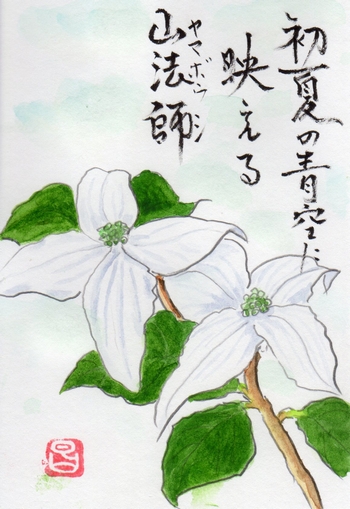 初夏の青空に
映える
山法師
ヤマボウシ
昌